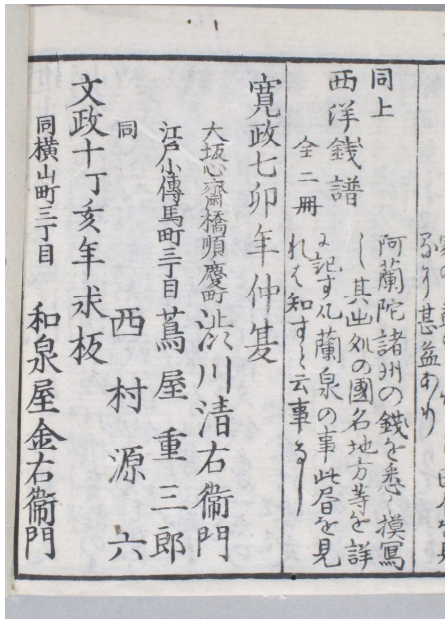 甚益あり
同上
西洋銭譜
全二冊
阿蘭陀諸州の錢を悉く摸寫
し其出処の國名地方等を詳
に記す凡蘭泉の事此書を見
れは知すと云事なし
寛政七卯年仲夏
大坂心齋橋順慶町 渋川清右衞門
江戸小傳馬町三丁目 蔦屋重三郎
同 西村源六
文政十丁亥年求板
同横山町三丁目 和泉屋金右衞門